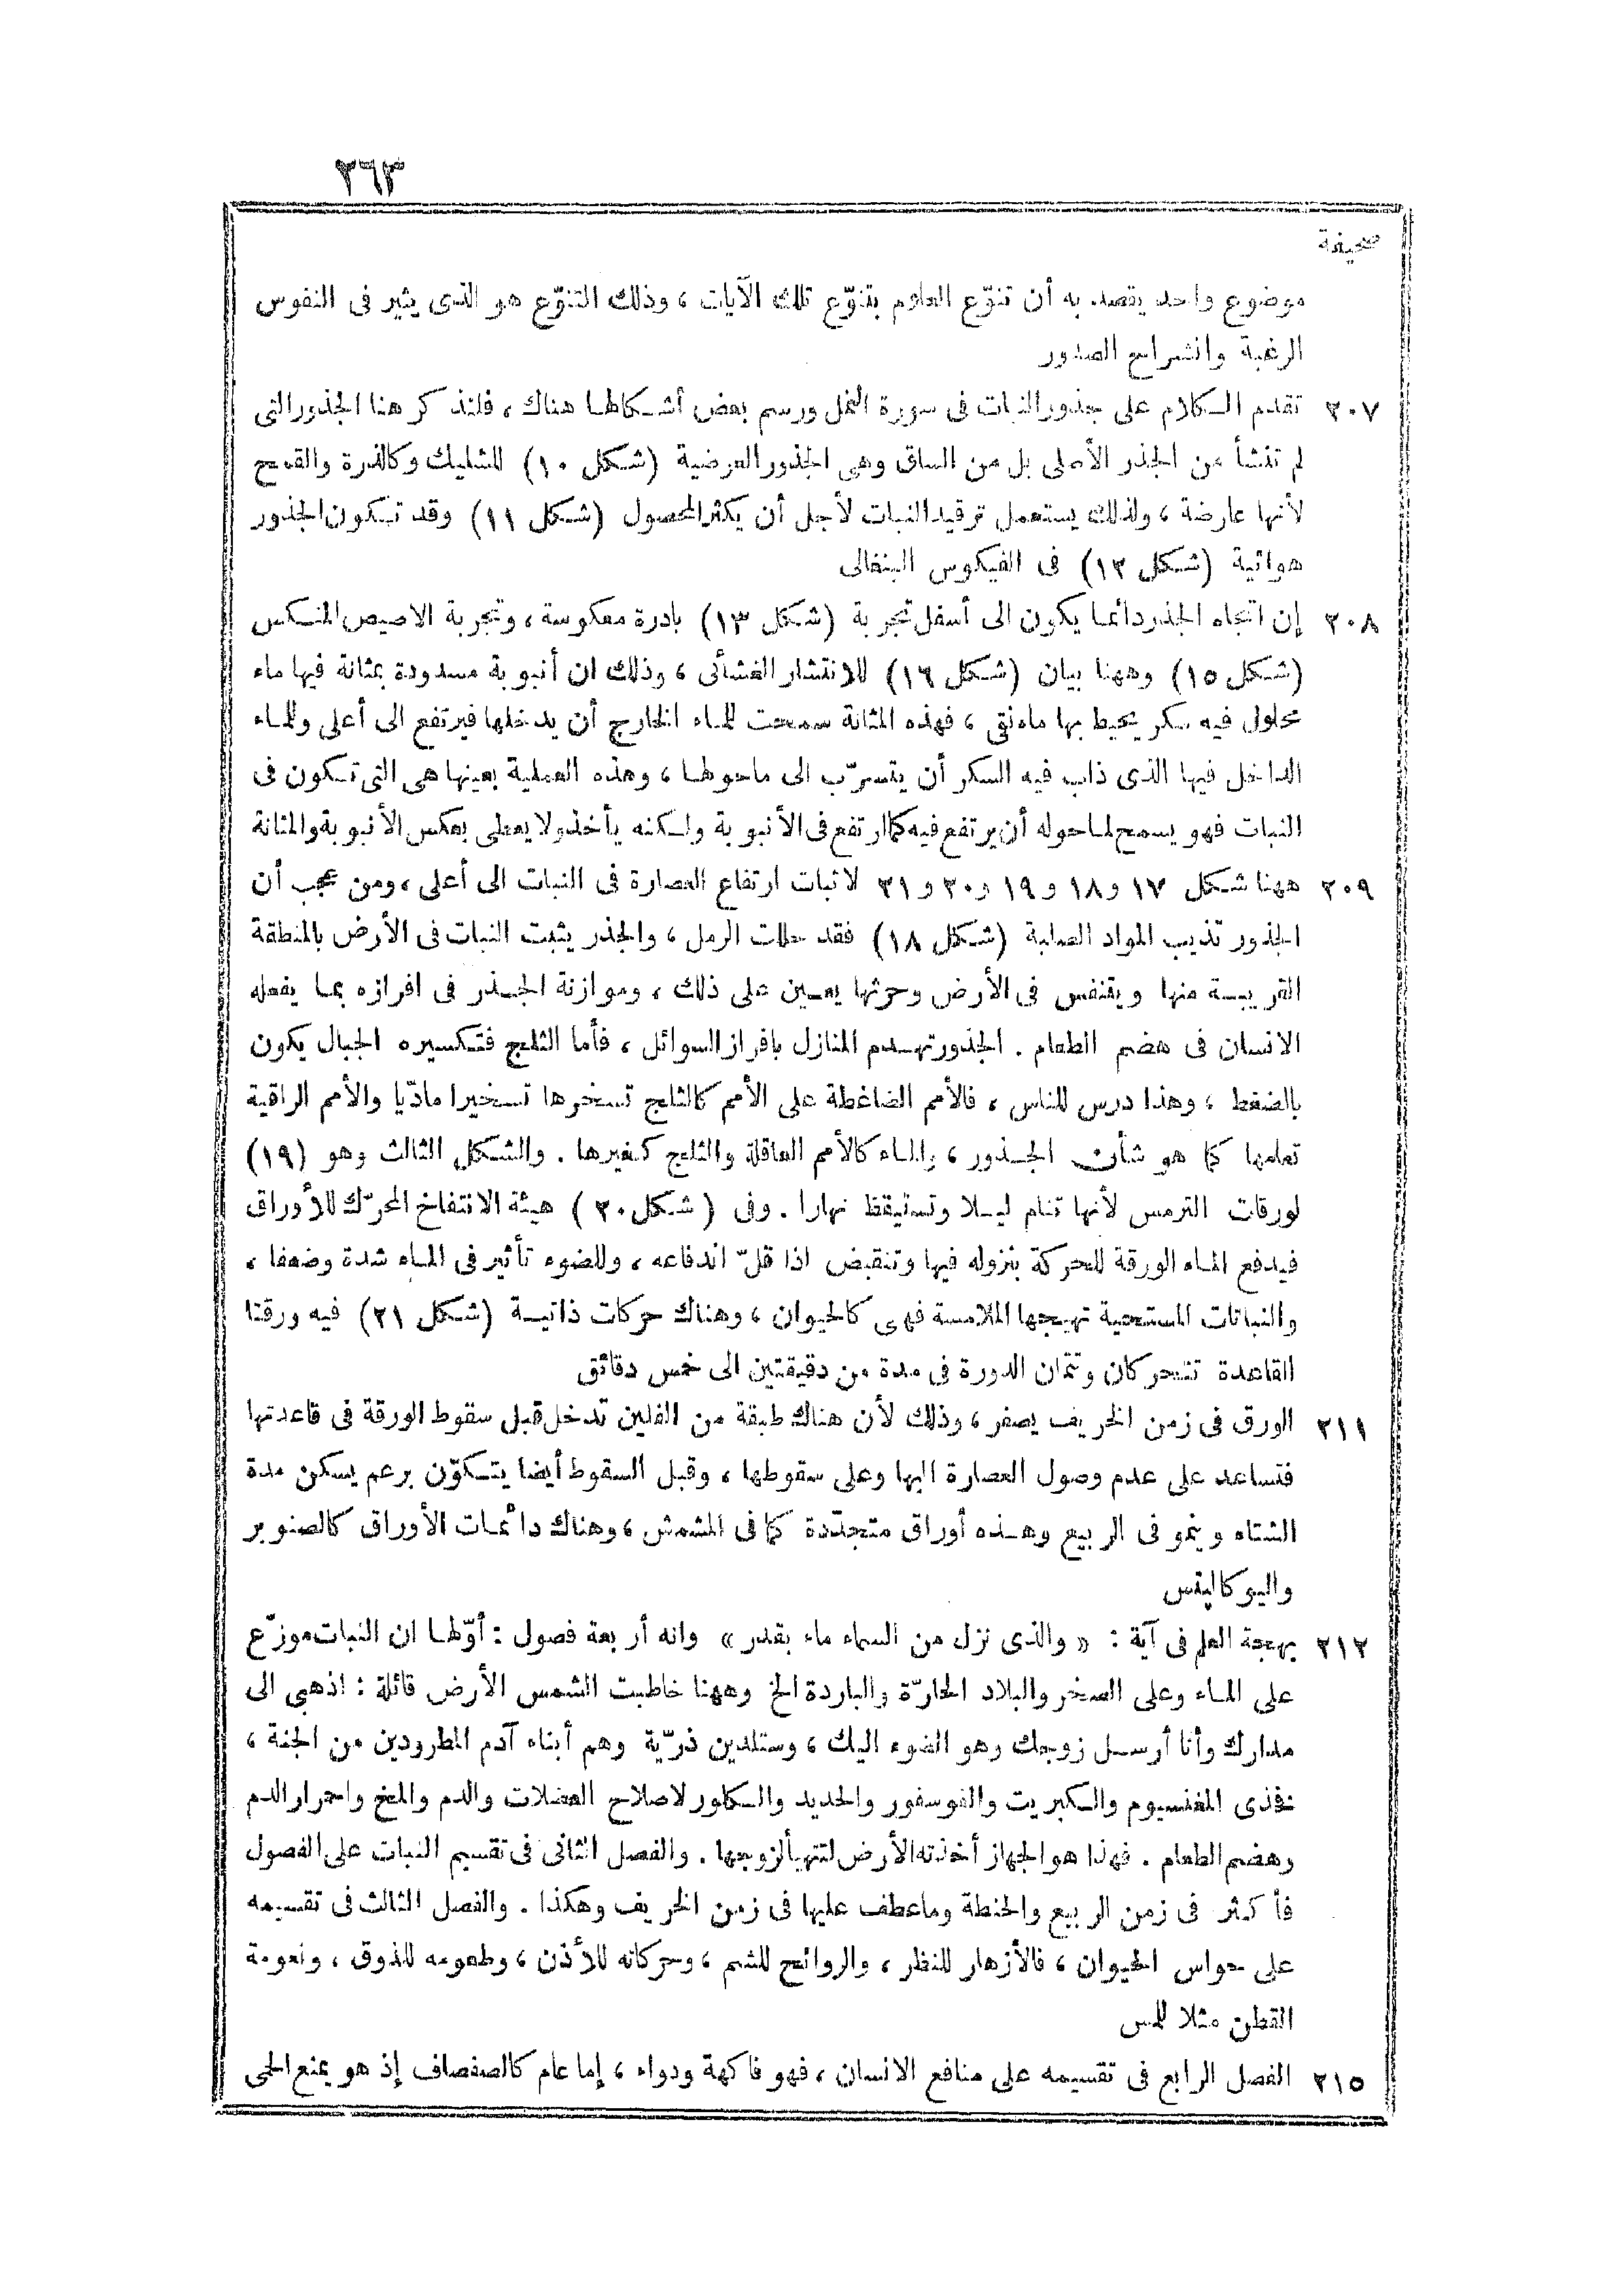 ٢٦٣
صحيفة
موضوع واحد يقصد به أن تنوّع العلوم بتنوّع تلك الآيات ، وذلك التنوّع هو الذى يثير فى النفوس
الرغبة وانشراح الصدور
٢٠٧ تقدم الكلام على جذور النبات فى سورة النمل ورسم بعض أشكالها هناك ، فلنذكر هنا الجذور التى
لم تنشأ من الجذر الأصلى بل من الساق وهى الجذور العرضية (شكل ١٠) للشليك وكالذرة والقمح
لأنها عارضة ، ولذلك يستعمل ترقيد النبات لأجل أن يكثر المحصول (شكل ١١) وقد تكون الجذور
هوائية (شكل ١٢) فى الفيكوس البنغالى
٢٠٨ إن اتجاه الجذر دائما يكون الى أسفل تجربة (شكل ١٣) بادرة معكوسة ، وتجربة الاصيص المنكس
(شكل ١٥) وههنا بيان (شكل ١٦) للانتشار الغشائى ، وذلك ان أنبوبة مسدودة بمثانة فيها ماء
محلول فيه سكر يحيط بها ماء نقى ، فهذه المثانة سمحت للماء الخارج أن يدخلها فيرتفع الى أعلى وللماء
الداخل فيها الذى ذاب فيه السكر أن يتسرّب الى ماحولها ، وهذه العملية بعينها هى التى تكون فى
النبات فهو يسمح لما حوله أن يرتفع فيه كما ارتفع فى الأنبوبة ولكنه يأخذ ولا يعطى بعكس الأنبوبة والمثانة
٢٠٩ ههنا شكل ١٧ و ١٨ و ١٩ و ٢٠ و ٢١ لاثبات ارتفاع العصارة فى النبات الى أعلى ، ومن عجب أن
الجذور تذيب المواد الصلبة (شكل ١٨) فقد حللت الرمل ، والجذر يثبت النبات فى الأرض بالمنطقة
القريبة منها ويتنفس فى الأرض وحرثها يعين على ذلك ، وموازنة الجذر فى افرازه بما يفعله
الانسان فى هضم الطعام . الجذور تهدم المنازل بافراز السوائل ، فأما الثلج فتكسيره الجبال يكون
بالضغط ، وهذا درس للناس ، فالأمم الضاغطة على الأمم كالثلج تسخرها تسخيرا مادّيا والأمم الراقية
تعلمها كما هو شأن الجذور ، والماء كالأمم العاقلة والثلج كغيرها . والشكل الثالث وهو (١٩)
لورقات الترمس لأنها تنام ليلا وتستيقظ نهارا . وفى (شكل ٢٠) هيئة الانتفاخ المحرّك للأوراق
فيدفع الماء الورقة للحركة بنزوله فيها وتنقبض اذا قلّ اندفاعه ، وللضوء تأثير فى الماء شدة وضعفا ،
والنباتات المستحية تهيجها الملامسة فهى كالحيوان ، وهناك حركات ذاتية (شكل ٢١) فيه ورقتا
القاعدة تتحركان وتتمان الدورة فى مدة من دقيقتين الى خمس دقائق
٢١١ الورق فى زمن الخريف يصفر ، وذلك لأن هناك طبقة من الفلين تدخل قبل سقوط الورقة فى قاعدتها
فتساعد على عدم وصول العصارة اليها وعلى سقوطها ، وقبل السقوط أيضا يتكوّن برعم يسكن مدة
الشتاء وينمو فى الربيع وهذه أوراق متجدّدة كما فى المشمش ، وهناك دائمات الأوراق كالصنوبر
واليوكالبتس
٢١٢ بهجة العلم فى آية : « والذى نزل من السماء ماء بقدر » وانه أربعة فصول : أوّلها ان النبات موزّع
على الماء وعلى الصخر والبلاد الحارّة والباردة الخ وههنا خاطبت الشمس الأرض قائلة : اذهبى الى
مدارك وأنا أرسل زوجك وهو الضوء اليك ، وستلدين ذرّية وهم أبناء آدم المطرودين من الجنة ،
فخذى المغنسيوم والكبريت والفوسفور والحديد والكلور لاصلاح العضلات والدم والمخ واحمرار الدم
وهضم الطعام . فهذا هو الجهاز أخذته الأرض لتتهيأ لزوجها . والفصل الثانى فى تقسيم النبات على الفصول
فأكثر فى زمن الربيع والحنطة وماعطف عليها فى زمن الخريف وهكذا . والفصل الثالث فى تقسيمه
على حواس الحيوان ، فالأزهار للنظر ، والروائح للشم ، وحركاته للأذن ، وطعومه للذوق ، ونعومة
القطن مثلا للمس
٢١٥ الفصل الرابع فى تقسيمه على منافع الانسان ، فهو فاكهة ودواء ، إما عام كالصفصاف إذ هو يمنع الحمى